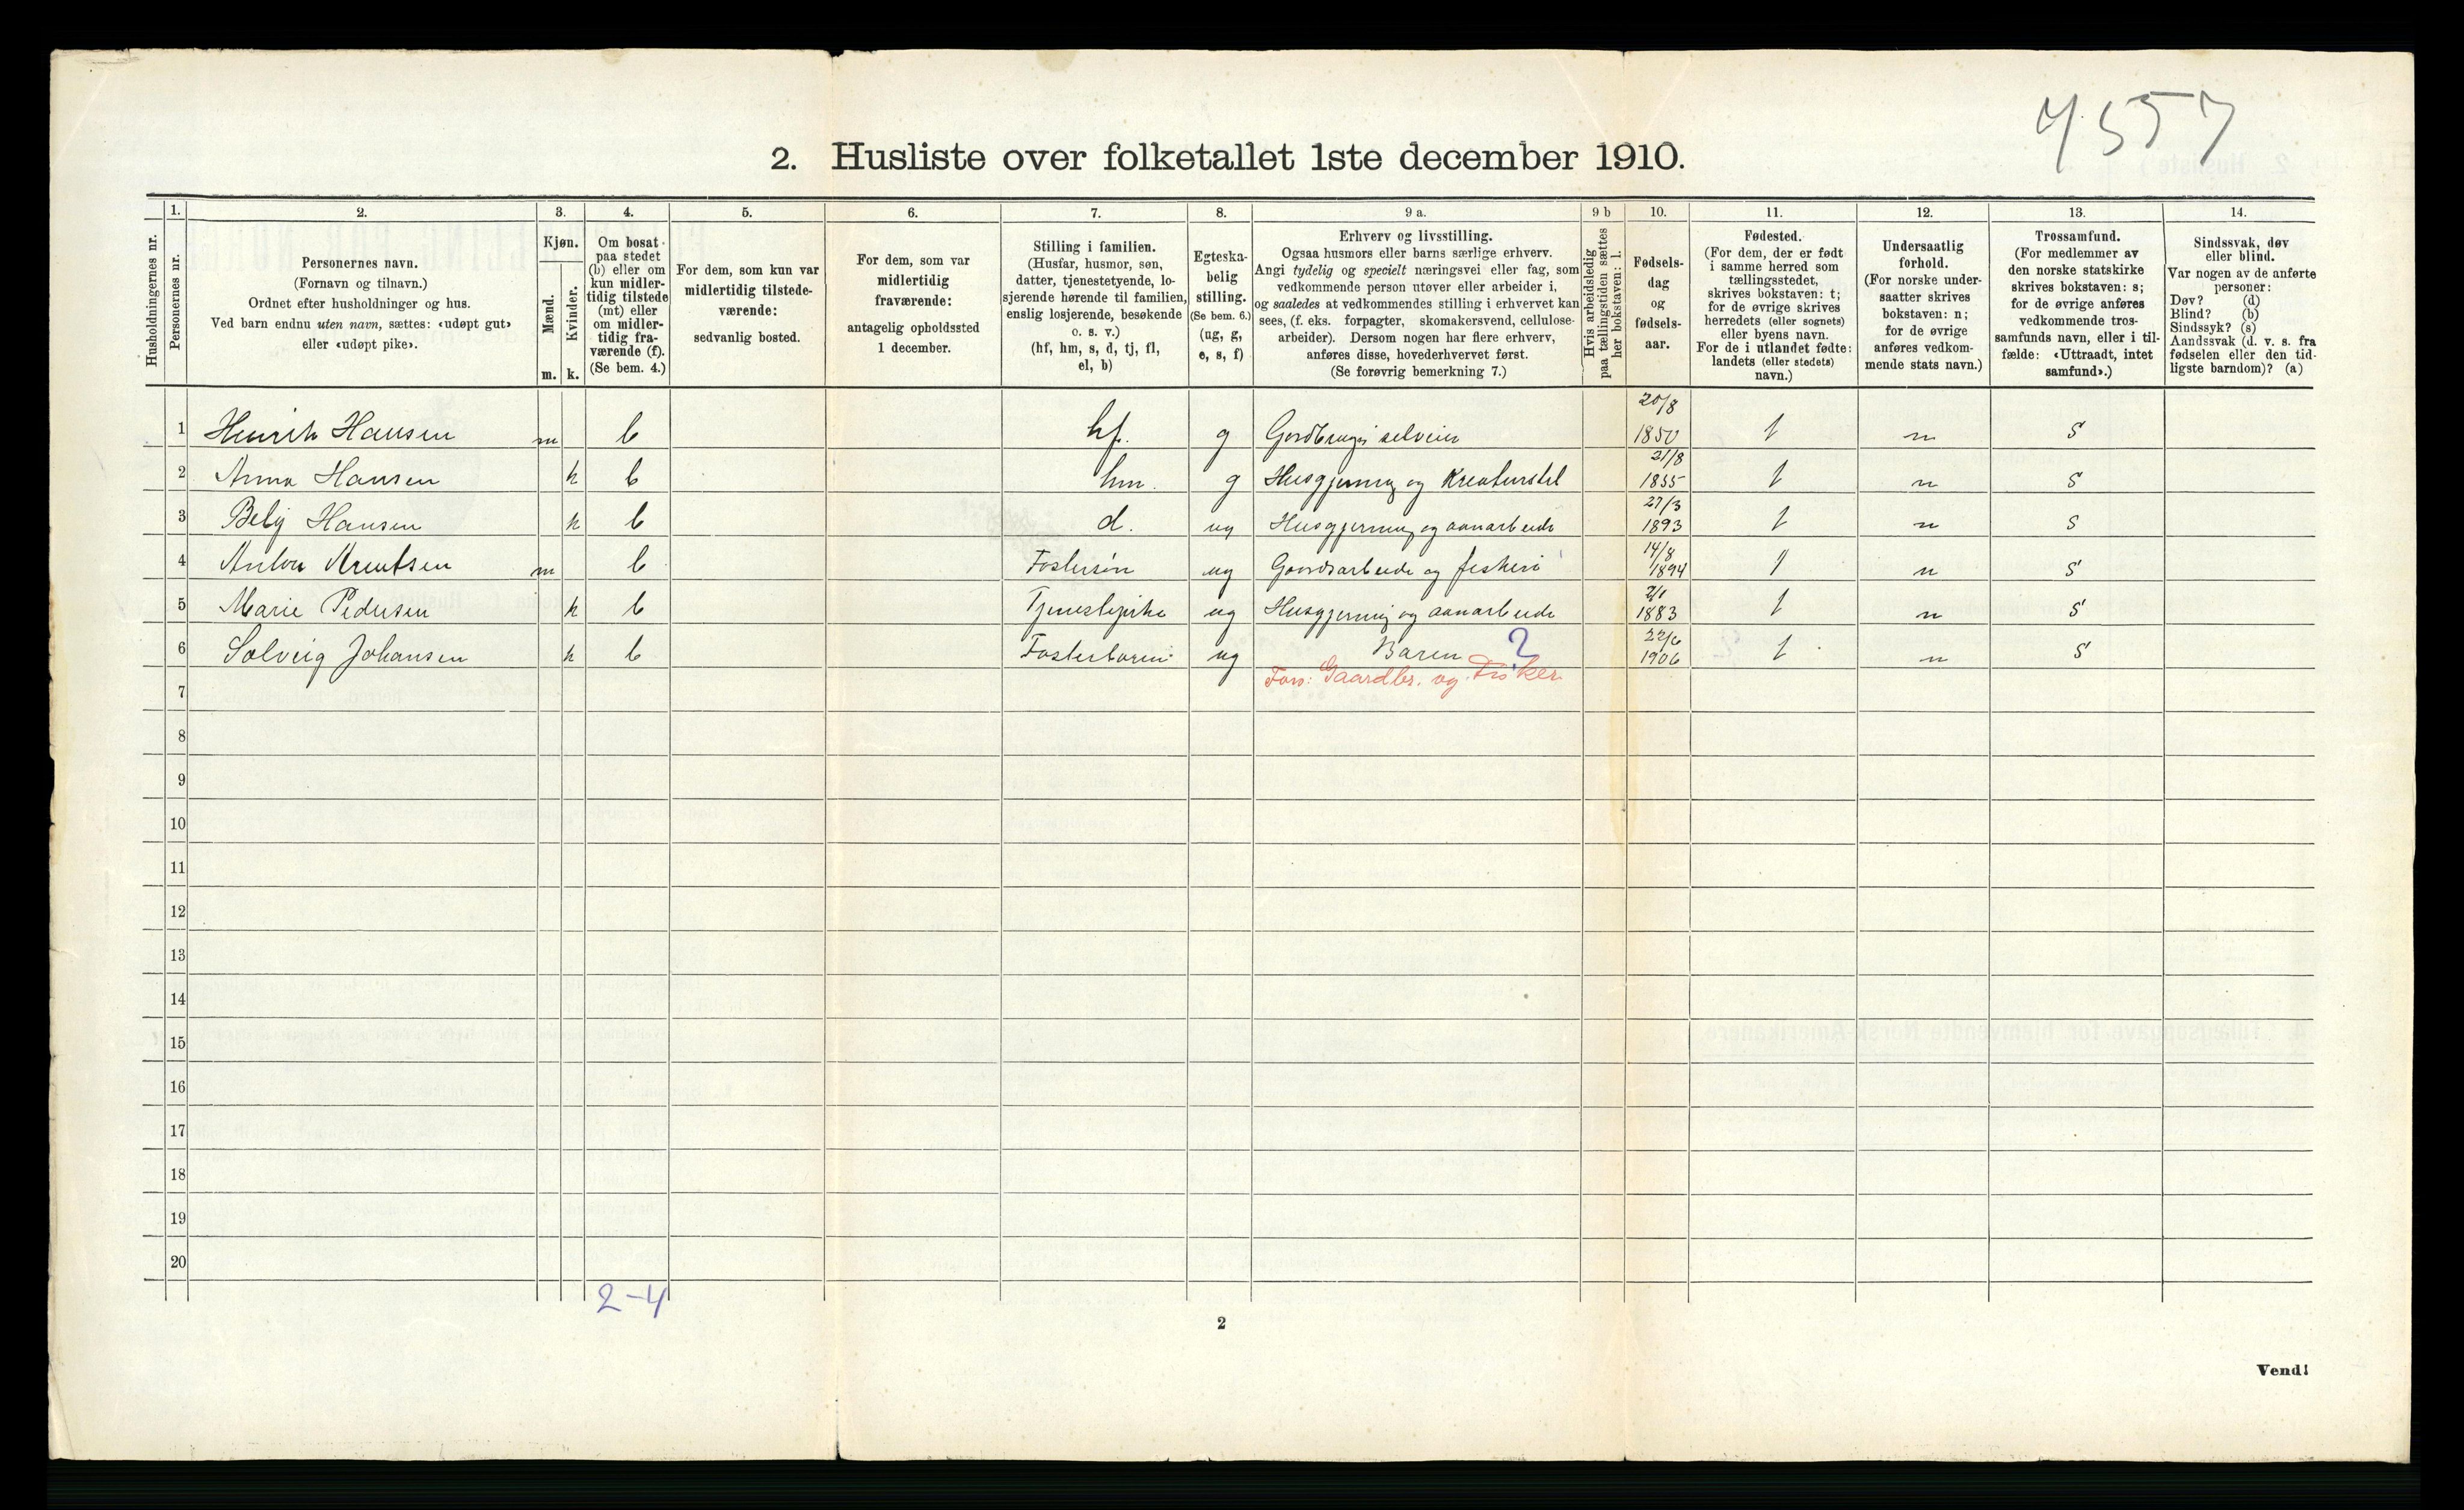 4557
2. Husliste over folketallet 1ste december 1910.
Husholdningernes nr.
1.
Personernes nr.
2.
Personernes navn.
(Fornavn og tilnavn.)
Ordnet efter husholdninger og hus.
Ved barn endnu uten navn, sættes: «udøpt gut»
eller «udøpt pike».
3.
Kjøn.
Mænd.
Kvinder.
m. k.
4.
Om bosat
paa stedet
(b) eller om
kun midler-
tidig tilstede
(mt) eller
om midler-
tidig fra-
værende (f).
(Se bem. 4.)
5.
For dem, som kun var
midlertidig tilstede-
værende:
sedvanlig bosted.
6.
For dem, som var
midlertidig
fraværende:
antagelig opholdssted
1 december.
7.
Stilling i familien.
(Husfar, husmor, søn,
datter, tjenestetyende, lo-
sjerende hørende til familien,
enslig losjerende, besøkende
o. s. v.)
(hf, hm, s, d, tj, fl,
el, b)
8.
Egteska-
belig
stilling.
(Se bem. 6.)
(ug, g,
e, s, f)
9 a.
Erhverv og livsstilling.
Ogsaa husmors eller barns særlige erhverv.
Angi tydelig og specielt næringsvei eller fag, som
vedkommende person utøver eller arbeider i,
og saaledes at vedkommendes stilling i erhvervet kan
sees, (f. eks. forpagter, skomakersvend, cellulose-
arbeider). Dersom nogen har flere erhverv,
anføres disse, hovederhvervet først.
(Se forøvrig bemerkning 7.)
9 b
Hvis arbeidsledig
paa tællingstiden sættes
her bokstaven: l.
10.
Fødsels-
dag
og
fødsels-
aar.
11.
Fødested.
(For dem, der er født
i samme herred som
tællingsstedet,
skrives bokstaven: t;
for de øvrige skrives
herredets (eller sognets)
eller byens navn.
For de i utlandet fødte:
landets (eller stedets)
navn.)
12.
Undersaatlig
forhold.
(For norske under-
saatter skrives
bokstaven: n;
for de øvrige
anføres vedkom-
mende stats navn.)
13.
Trossamfund.
(For medlemmer av
den norske statskirke
skrives bokstaven: s;
for de øvrige anføres
vedkommende tros-
samfunds navn, eller i til-
fælde: «Uttraadt, intet
samfund».)
14.
Sindssvak, døv
eller blind.
Var nogen av de anførte
personer:
Døv? (d)
Blind? (b)
Sindssyk? (s)
Aandssvak (d. v. s. fra
fødselen eller den tid-
ligste barndom)? (a)
1 Henrik Hansen m b hf. g Gordbruger selveier 20/8 1850 t n s
2 Anna Hansen k b hm. g Husgjerning og Kreaturstel 21/8 1855 t n s
3 Hansen k b d. ug Husgjerning og aanarbeide 27/3 1893 t n s
4 Anton Knutsen m b Fostersøn ug Gaardsarbeide og fiskeri 14/8 1894 t n s
5 Marie Pedersen k b Tjenestepike ug Husgjerning og aanarbeide 1883 t n s
6 Solveig Johansen k b Fosterbaren ug Baren ? 22/6 1906 t n s
7 Fors: Gaardbr. og Fisker
8
9
10
11
12
13
14
15
16
17
18
19
20
2-4
2
Vend!